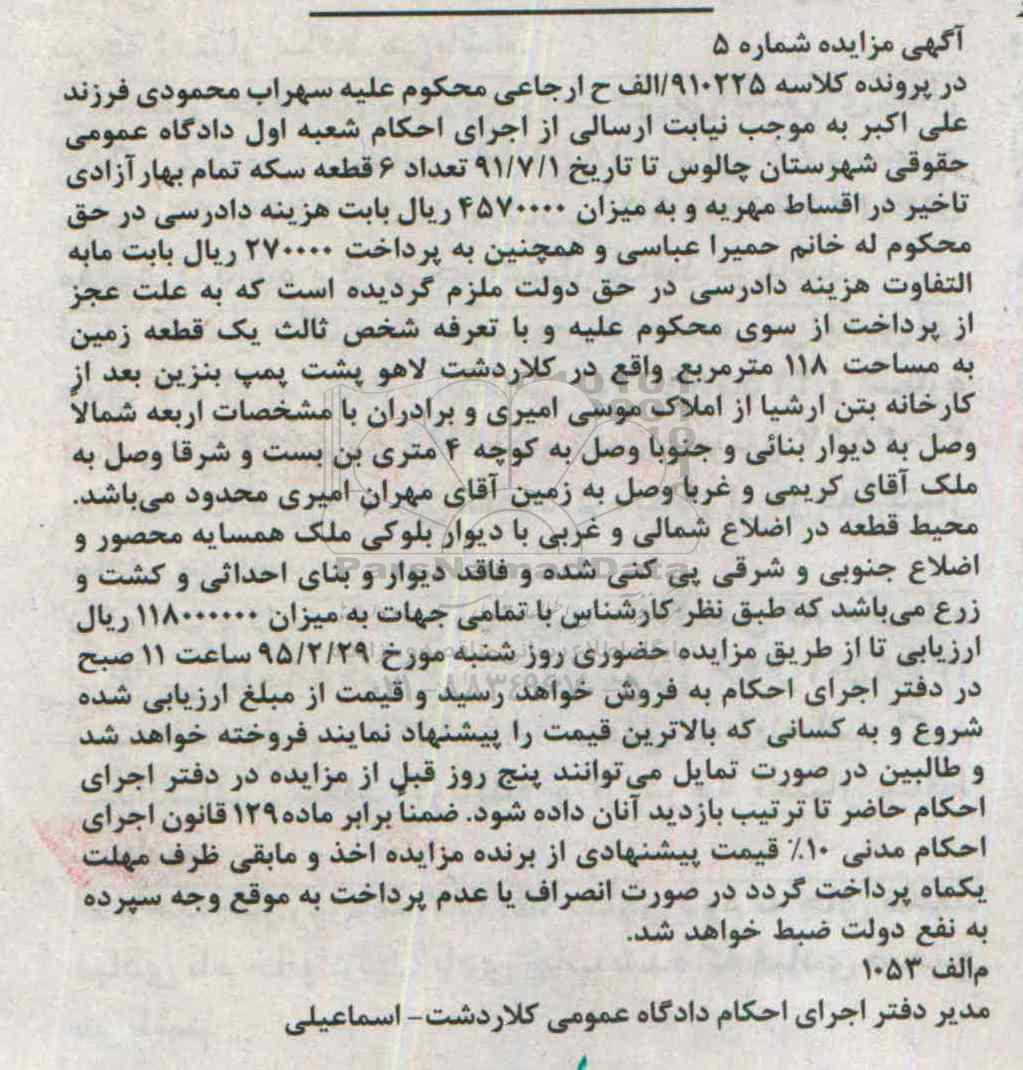 آگهی مزایده شماره ۵
در پرونده کلاسه ۹۱۰۲۲۵/الف ح ارجاعی محکوم علیه سهراب محمودی فرزند
علی اکبر به موجب نیابت ارسالی از اجرای احکام شعبه اول دادگاه عمومی
حقوقی شهرستان چالوس تا تاریخ ۹۱/۷/۱ تعداد ۶ قطعه سکه تمام بهار آزادی
تاخیر در اقساط مهریه و به میزان ۴۵۷۰۰۰۰ ریال بابت هزینه دادرسی در حق
محکوم له خانم حمیرا عباسی و همچنین به پرداخت ۲۷۰۰۰۰ ریال بابت مابه
التفاوت هزینه دادرسی در حق دولت ملزم گردیده است که به علت عجز
از پرداخت از سوی محکوم علیه و با تعرفه شخص ثالث یک قطعه زمین
به مساحت ۱۱۸ مترمربع واقع در کلاردشت لاهو پشت پمپ بنزین بعد از
کارخانه بتن ارشیا از املاک موسی امیری و برادران با مشخصات اربعه شمالاً
وصل به دیوار بنائی و جنوبا وصل به کوچه ۴ متری بن بست و شرقا وصل به
ملک آقای کریمی و غربا وصل به زمین آقای مهران امیری محدود می‌باشد.
محیط قطعه در اضلاع شمالی و غربی با دیوار بلوکی ملک همسایه محصور و
اضلاع جنوبی و شرقی پی کنی شده و فاقد دیوار و بنای احداثی و کشت و
زرع می‌باشد که طبق نظر کارشناس با تمامی جهات به میزان ۱۱۸۰۰۰۰۰۰ ریال
ارزیابی تا از طریق مزایده حضوری روز شنبه مورخ ۹۵/۲/۲۹ ساعت ۱۱ صبح
در دفتر اجرای احکام به فروش خواهد رسید و قیمت از مبلغ ارزیابی شده
شروع و به کسانی که بالاترین قیمت را پیشنهاد نمایند فروخته خواهد شد
و طالبین در صورت تمایل می‌توانند پنج روز قبل از مزایده در دفتر اجرای
احکام حاضر تا ترتیب بازدید آنان داده شود. ضمناً برابر ماده ۱۲۹ قانون اجرای
احکام مدنی ۱۰٪ قیمت پیشنهادی از برنده مزایده اخذ و مابقی ظرف مهلت
یکماه پرداخت گردد در صورت انصراف یا عدم پرداخت به موقع وجه سپرده
به نفع دولت ضبط خواهد شد.
م‌الف ۱۰۵۳
مدیر دفتر اجرای احکام دادگاه عمومی کلاردشت- اسماعیلی
ParsNamadData